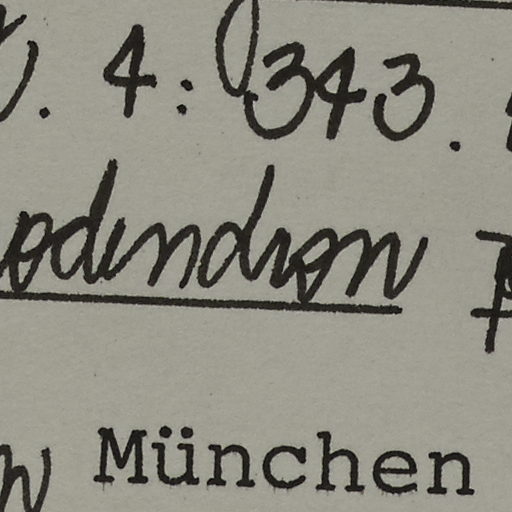 . 4: 343.
odendron
München